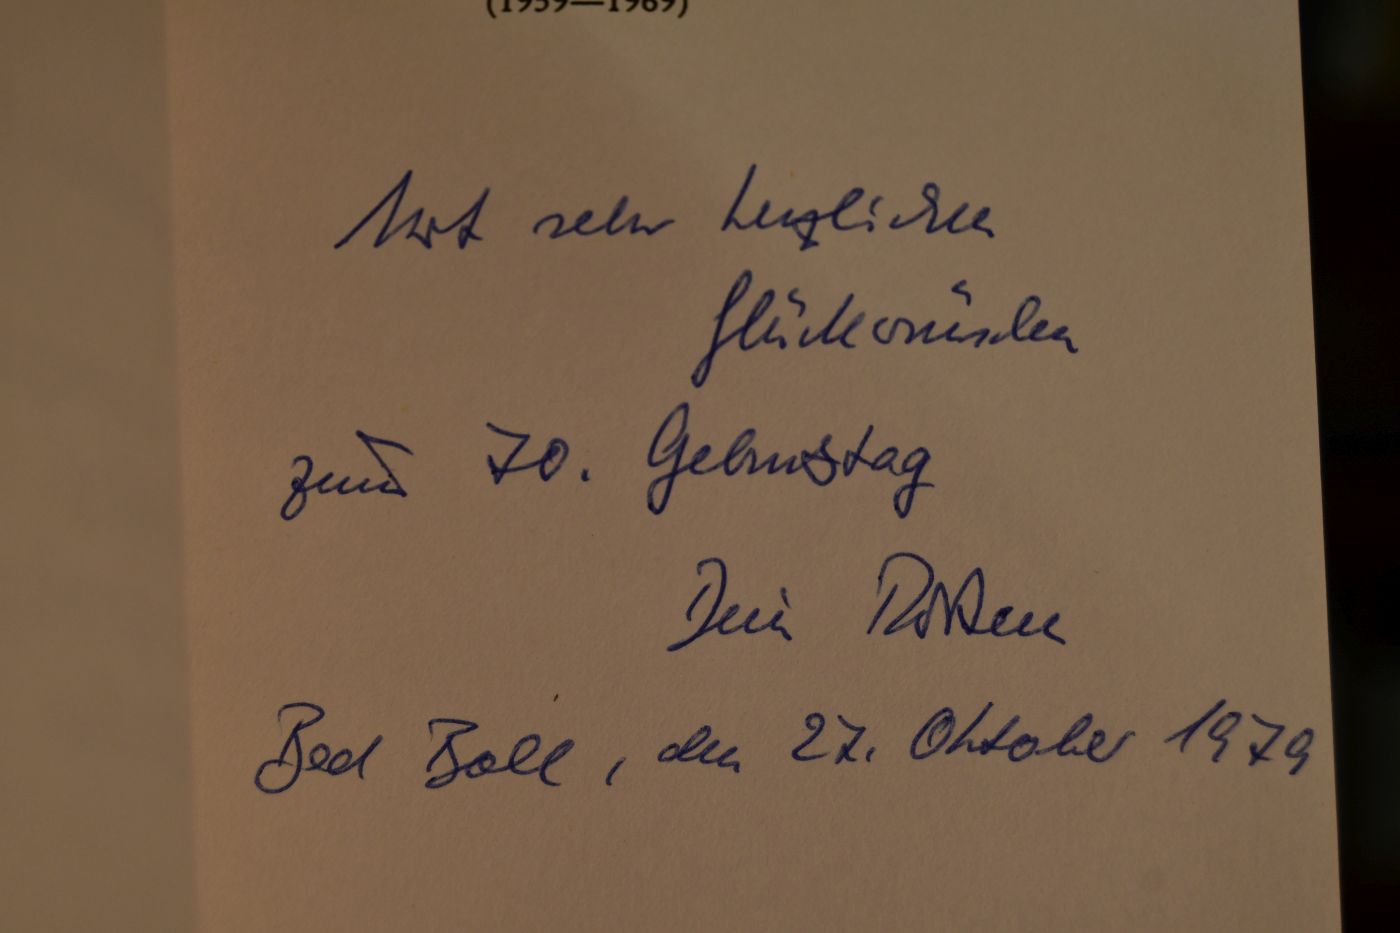 (1959—1969)
Mit sehr herzlichen
Glückwünschen
zum 70. Geburtstag
Dein
Bad Boll, den 27. Oktober 1979